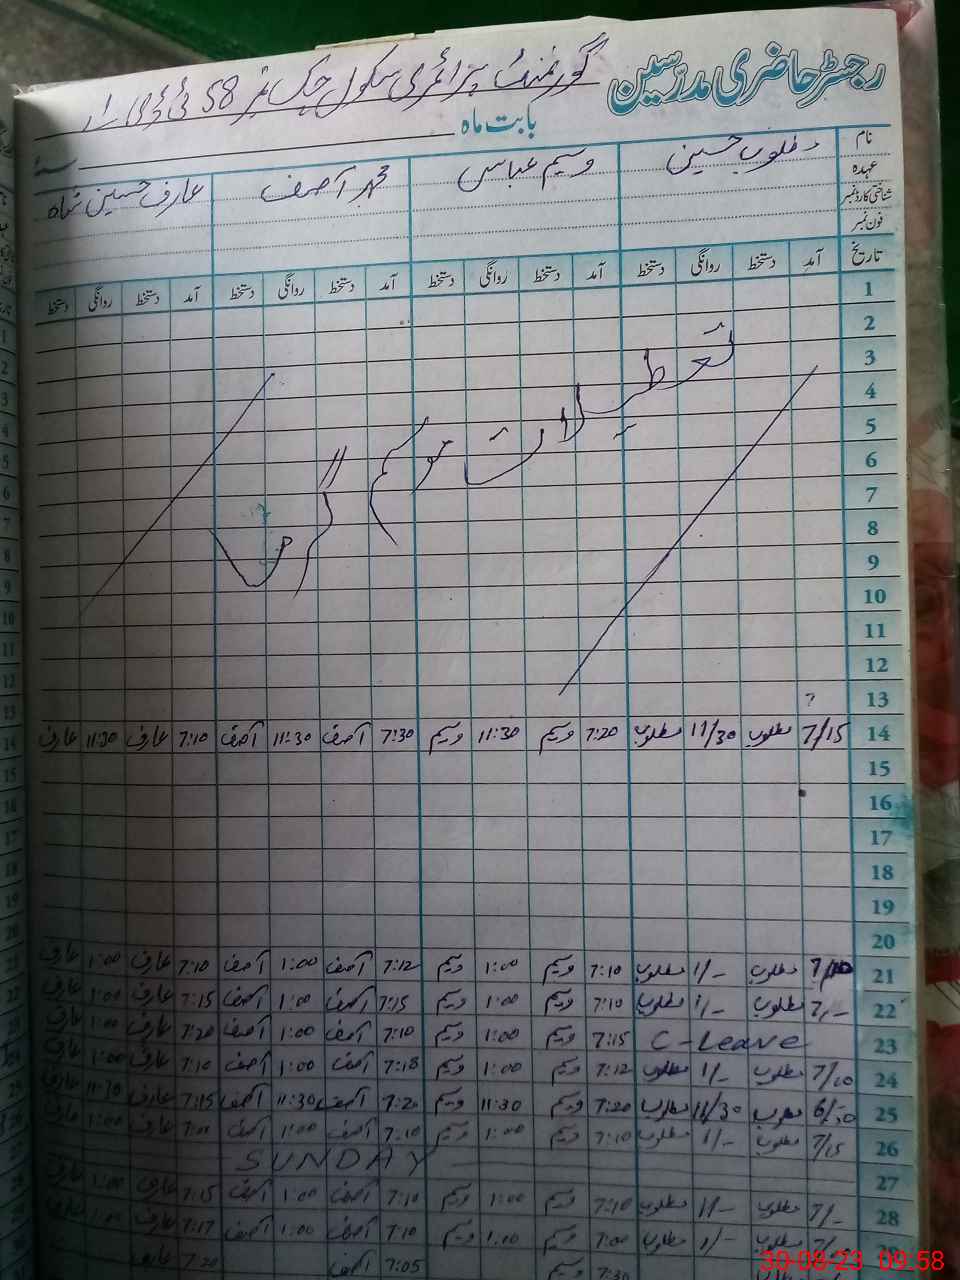 رجسٹر حاضری مدرسین
گورنمنٹ پرائمری سکول چک نمبر 58
بابت ماہ
نام مطلوب حسین وسیم عباسی محمد آصف عارف حسین شاہ
عہدہ
شناختی کارڈ نمبر
فون نمبر
تاریخ آمد دستخط روانگی دستخط آمد دستخط روانگی دستخط آمد دستخط روانگی دستخط آمد دستخط روانگی دستخط
1
2
3
4
5
6
7
8
9
10
11
12
13
تعطیلات موسم گرما
14 7/15 مطلوب 11/30 مطلوب 7:20 وسیم 11:30 وسیم 7:30 آصف 11:30 آصف 7:10 عارف 11:30 عارف
15
16
17
18
19
20
21 مطلوب 1/- مطلوب 7:10 وسیم 1:00 وسیم 7:12 آصف 1:00 آصف 7:10 عارف 1:00 عارف
22 7/- مطلوب 1/- مطلوب 7:10 وسیم 1:00 وسیم 7:15 آصف 1:00 آصف 7:15 عارف 1:00 عارف
23 C-Leave 7:15 وسیم 1:00 وسیم 7:10 آصف 1:00 آصف 7:20 عارف 1:00 عارف
24 7/10 مطلوب 1/- مطلوب 7:12 وسیم 1:00 وسیم 7:18 آصف 1:00 آصف 7:10 عارف 1:00 عارف
25 6/50 مطلوب 11/30 مطلوب 7:20 وسیم 11:30 وسیم 7:20 آصف 11:30 آصف 7:15 عارف 11:30 عارف
26 7/15 مطلوب 1/- مطلوب 7:10 وسیم 1:00 وسیم 7:10 آصف 1:00 آصف عارف 1:00 عارف
27 SUNDAY
28 7/- مطلوب 1/- مطلوب 7:10 وسیم 1:00 وسیم 7:10 آصف 1:00 آصف 7:15 عارف 1:00 عارف
مطلوب 1/- مطلوب 7:00 وسیم 1:00 وسیم 7:10 آصف 1:00 آصف 7:17 عارف عارف
7:30 وسیم 7:05 آصف 7:20 عارف
30-08-23 09:58